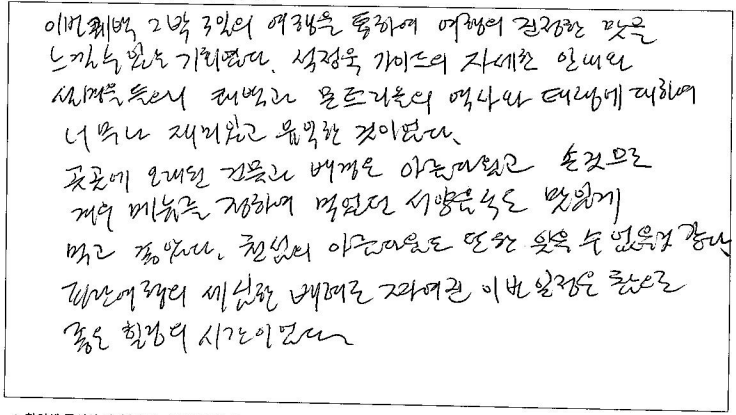 이번 퀘벡 2박 3일의 여행을 통하여 여행의 진정한 맛을
느낄 수 있는 기회였다. 석정욱 가이드의 자세한 안내와
설명을 들으니 퀘벡과 몬트리올의 역사와 태생에 대하여
너무나 재미있고 유익한 것이었다.
곳곳에 오래된 건물과 배경은 아름다웠고 손짓으로
겨우 메뉴를 정하여 먹었던 서양음식도 맛있게
먹고 좋았다. 천섬의 아름다움도 또한 잊을 수 없을것 같다.
파란여행의 세심한 배려로 이번 일정은 참으로
좋은 힐링의 시간이었다.